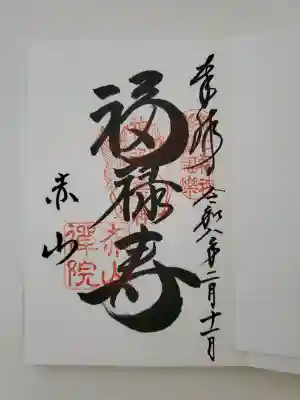 奉拝 令和八年二月十一日
福禄寿
赤山
赤山
禪院